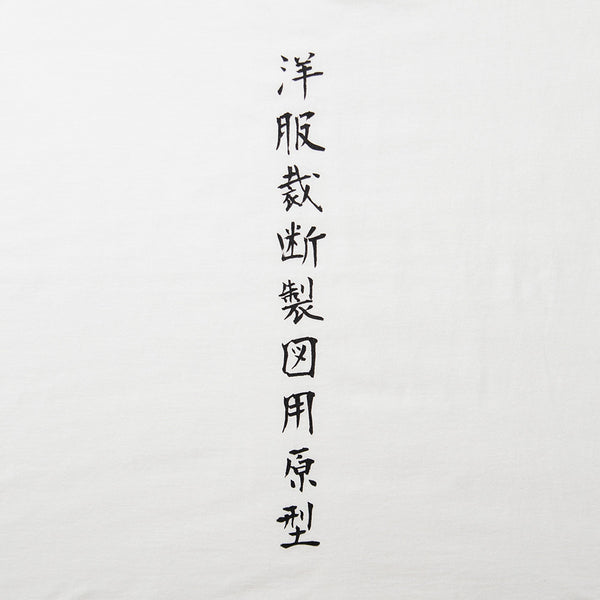 洋服裁断製図用原型